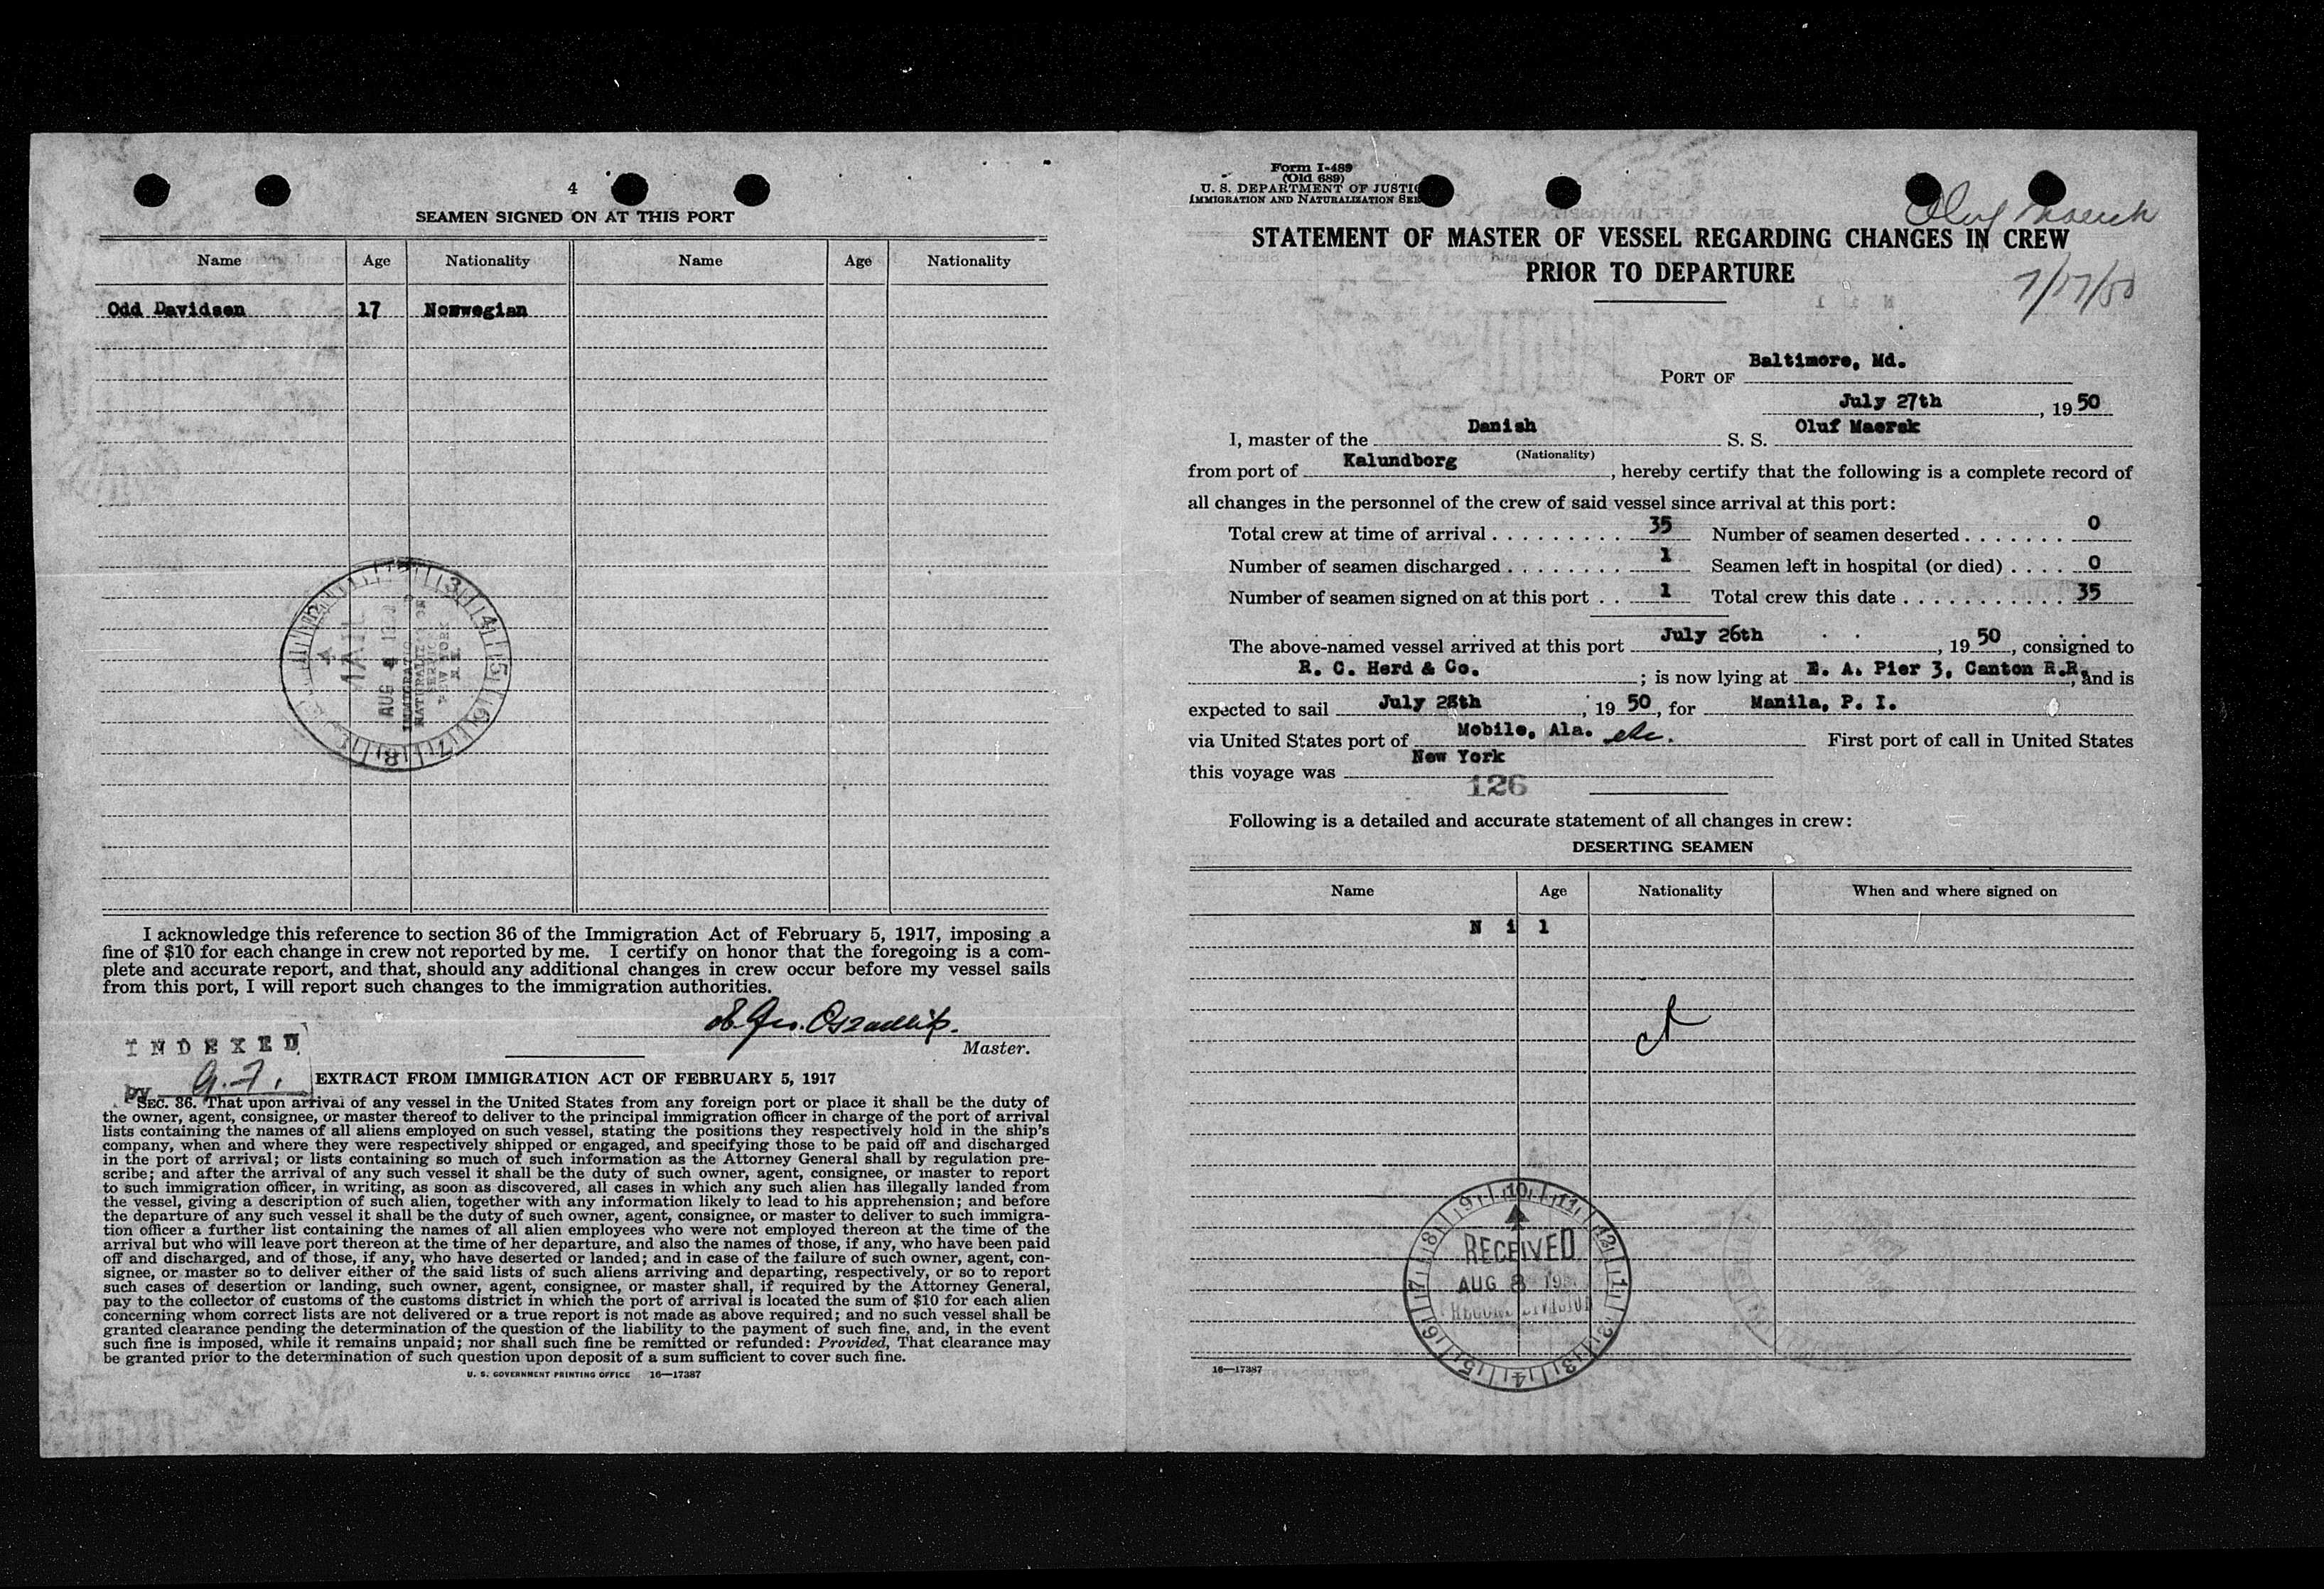 4
SEAMEN SIGNED ON AT THIS PORT
Name Age Nationality Name Age Nationality
Odd Davidsen 17 Norwegian
MAIL
AUG 4
IMMIGRATION
NATURALIZATION
SERVICE
NEW YORK
N. Y.
I acknowledge this reference to section 36 of the Immigration Act of February 5, 1917, imposing a
fine of $10 for each change in crew not reported by me. I certify on honor that the foregoing is a com-
plete and accurate report, and that, should any additional changes in crew occur before my vessel sails
from this port, I will report such changes to the immigration authorities.
Master.
INDEXED
by G. F.
EXTRACT FROM IMMIGRATION ACT OF FEBRUARY 5, 1917
SEC. 36. That upon arrival of any vessel in the United States from any foreign port or place it shall be the duty of
the owner, agent, consignee, or master thereof to deliver to the principal immigration officer in charge of the port of arrival
lists containing the names of all aliens employed on such vessel, stating the positions they respectively hold in the ship's
company, when and where they were respectively shipped or engaged, and specifying those to be paid off and discharged
in the port of arrival; or lists containing so much of such information as the Attorney General shall by regulation pre-
scribe; and after the arrival of any such vessel it shall be the duty of such owner, agent, consignee, or master to report
to such immigration officer, in writing, as soon as discovered, all cases in which any such alien has illegally landed from
the vessel, giving a description of such alien, together with any information likely to lead to his apprehension; and before
the departure of any such vessel it shall be the duty of such owner, agent, consignee, or master to deliver to such immigra-
tion officer a further list containing the names of all alien employees who were not employed thereon at the time of the
arrival but who will leave port thereon at the time of her departure, and also the names of those, if any, who have been paid
off and discharged, and of those, if any, who have deserted or landed; and in case of the failure of such owner, agent, con-
signee, or master so to deliver either of the said lists of such aliens arriving and departing, respectively, or so to report
such cases of desertion or landing, such owner, agent, consignee, or master shall, if required by the Attorney General,
pay to the collector of customs of the customs district in which the port of arrival is located the sum of $10 for each alien
concerning whom correct lists are not delivered or a true report is not made as above required; and no such vessel shall be
granted clearance pending the determination of the question of the liability to the payment of such fine, and, in the event
such fine is imposed, while it remains unpaid; nor shall such fine be remitted or refunded: Provided, That clearance may
be granted prior to the determination of such question upon deposit of a sum sufficient to cover such fine.
U. S. GOVERNMENT PRINTING OFFICE 16—17387
Form I-489
(Old 689)
U. S. DEPARTMENT OF JUSTIC
IMMIGRATION AND NATURALIZATION SER
Oluf Maersk
STATEMENT OF MASTER OF VESSEL REGARDING CHANGES IN CREW
PRIOR TO DEPARTURE
7/17/50
PORT OF Baltimore, Md.
July 27th, 19 50
I, master of the Danish S. S. Oluf Maersk
(Nationality)
from port of Kalundborg, hereby certify that the following is a complete record of
all changes in the personnel of the crew of said vessel since arrival at this port:
Total crew at time of arrival . . . . . . . . . 35 Number of seamen deserted . . . . . . . 0
Number of seamen discharged . . . . . . . . 1 Seamen left in hospital (or died) . . . . 0
Number of seamen signed on at this port . . 1 Total crew this date . . . . . . . . . . . . 35
The above-named vessel arrived at this port July 26th, 19 50, consigned to
R. C. Herd & Co.; is now lying at E. A. Pier 3, Canton R.R., and is
expected to sail July 28th, 19 50, for Manila, P. I.
via United States port of Mobile, Ala. etc. First port of call in United States
this voyage was New York
126
Following is a detailed and accurate statement of all changes in crew:
DESERTING SEAMEN
Name Age Nationality When and where signed on
N i l
RECEIVED
AUG 8 19
RECORD DIVISION
16—17387